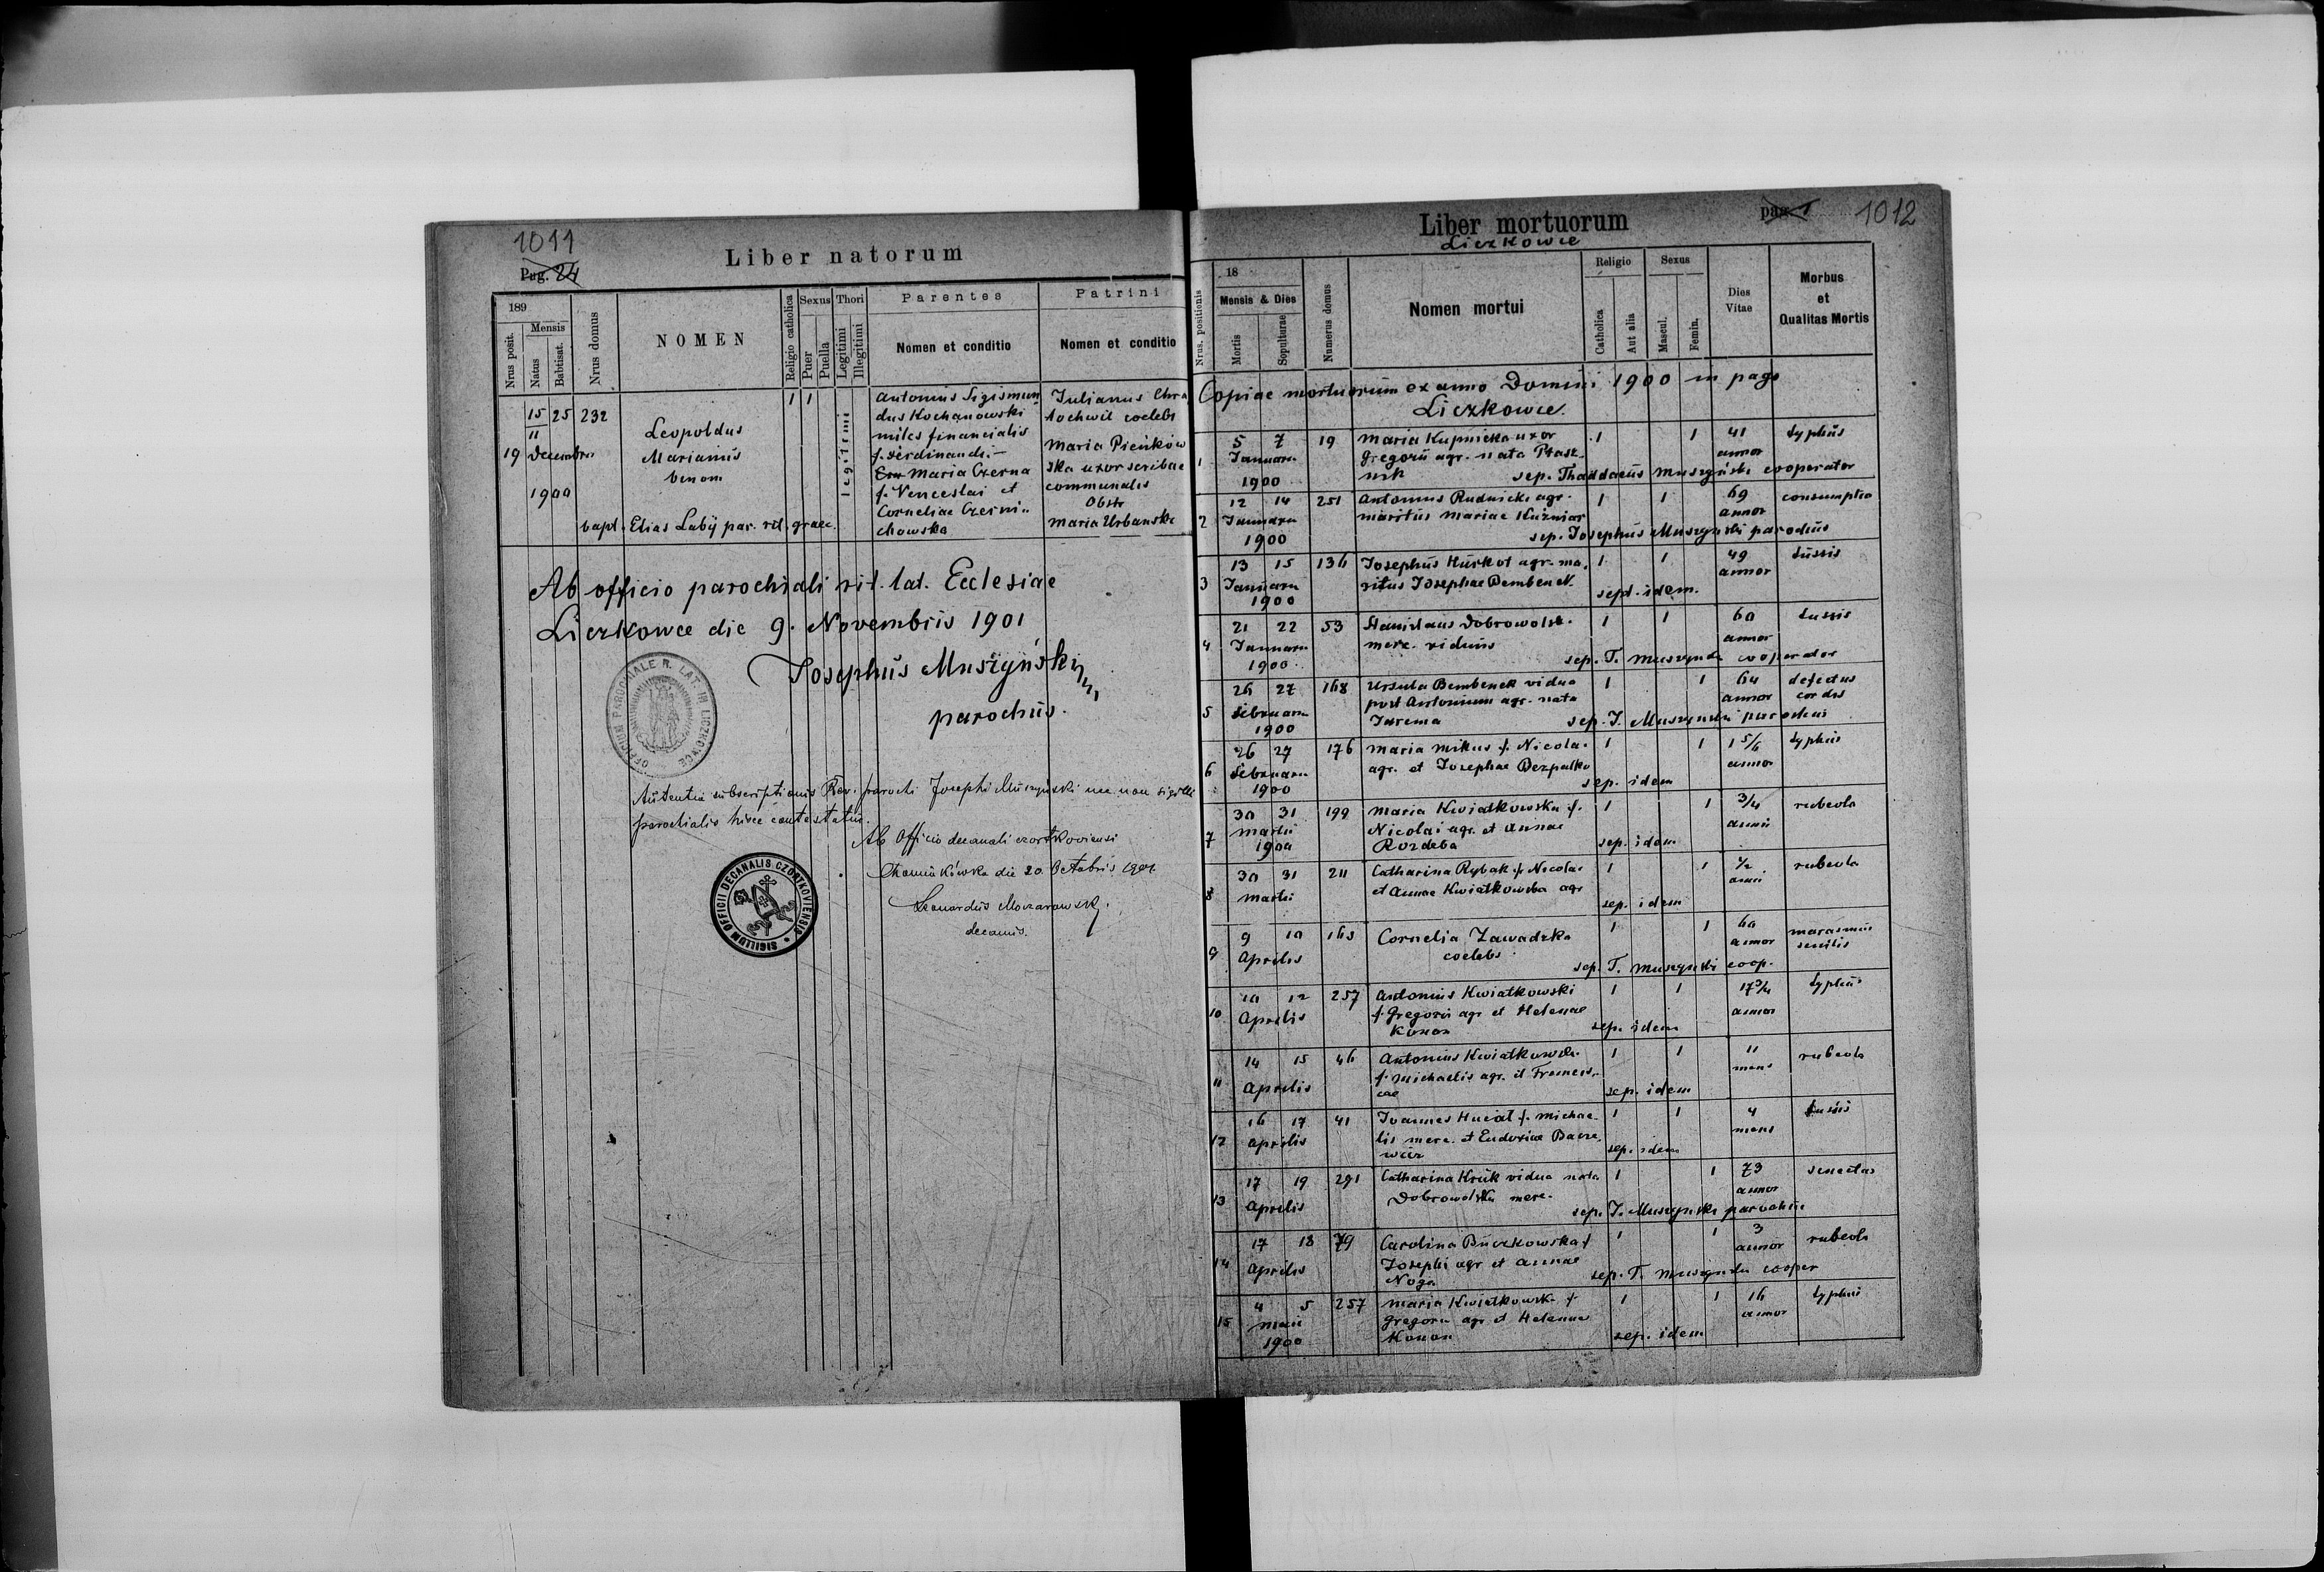 1011
Pag. 24
Liber natorum
189
Nrus posit.
Mensis
Natus
Babtisat.
Nrus domus
NOMEN
Religio catholica
Sexus
Puer
Puella
Thori
Legitimi
Illegitimi
Parentes
Nomen et conditio
Patrini
Nomen et conditio
19
15 25 232
11
Decembris
1900
Leopoldus
Marianus
binom
1 1
legitimi
Antonius Sigismun
dus Kochanowski
miles financialis
f. Ferdinandi.
Maria Czerna
f. Venceslai et
Corneliae Czerni
chowska
Julianus Chra
tochwil coelebs
Maria Pieńkow
ska uxor scribae
communalis
Obstr
Maria Urbanska
bapt. Elias Labij par. rit. graec.
Ab officio parochiali rit. lat. Ecclesiae
Liczkowce die 9. Novembris 1901
Josephus Muszyński
parochus.
OFFICIUM PAROCHIALE R. LAT. IN LICZKOWCE
Autentia subscriptionis Rev. parochi Josephi Muszyński nec non sigilli
parochialis hisce contestatur.
Ab Officio decanali czortkoviensi
Chomiakówka die 20 Octobris 1901.
Leonardus Moczarowski
decanus.
SIGILLUM OFFICII DECANALIS CZORTKOVIENSIS
Liber mortuorum
Liczkowce
pag. 1
1012
Nrus. positionis
18
Mensis & Dies
Mortis
Sepulturae
Numerus domus
Nomen mortui
Religio
Catholica
Aut alia
Sexus
Mascul.
Femin.
Dies
Vitae
Morbus
et
Qualitas Mortis
Copiae mortuorum ex anno Domini 1900 in pago
Liczkowce.
5 7 19 Maria Kupnicka uxor 1 1 41 typhus
1 Januarii Gregorii agr. nata Ptasz annor
1900 nik sep. Thaddaeus Muszyński cooperator
12 14 251 Antonius Rudnicki agr. 1 1 69 consumptio
2 Januarii maritus Mariae Kuźniar annor
1900 sep. Josephus Muszyński parochus
13 15 136 Josephus Hurkot agr. ma 1 1 49 tussis
3 Januarii ritus Josephae Bembenek annor
1900 sept. idem.
21 22 53 Stanislaus Dobrowolski 1 1 60 tussis
4 Januarii merc. viduus annor
1900 sep. T. Muszyński cooperator
26 27 168 Ursula Bembenek vidua 1 1 64 defectus
5 Februarii post Antonium agr. nata annor cordis
1900 Jurema sep. J. Muszyński parochus
26 27 176 Maria Mikus f. Nicolai 1 1 1 5/6 typhus
6 Februarii agr. et Josephae Bezpalko annor
1900 sep. idem
30 31 199 Maria Kwiatkowska f. 1 1 3/4 rubeola
7 Martii Nicolai agr. et Annae annii
1900 Rozdeba sep. idem
30 31 211 Catharina Rybak f. Nicolai 1 1 1/2 rubeola
8 Martii et Annae Kwiatkowska agr annii
sep. idem
9 10 163 Cornelia Zawadzka 1 1 60 marasmus
9 Aprilis coelebs annor senilis
sep. T. Muszyński coop.
10 12 257 Antonius Kwiatkowski 1 1 17 3/4 typhus
10 Aprilis f. Gregorii agr et Helenae annor
Konon sep. idem
14 15 46 Antonius Kwiatkowski 1 1 11 rubeola
11 Aprilis f. Michaelis agr. et Francis mens
cae sep. idem
16 17 41 Joannes Hucał f. Michae 1 1 4 tussis
12 Aprilis lis merc. et Eudoxiae mens
wicz sep. idem
17 19 291 Catharina Kruk vidua nata 1 1 73 senectus
13 Aprilis Dobrowolska merc. annor
sep. J. Muszyński parochus
17 18 79 Carolina Buczkowska f 1 1 3 rubeola
14 Aprilis Josephi agr et Annae annor
Noga sep. T. Muszyński cooper
4 5 257 Maria Kwiatkowska f 1 1 16 typhus
15 Maii Gregorii agr et Helenae annor
1900 Konon sep. idem